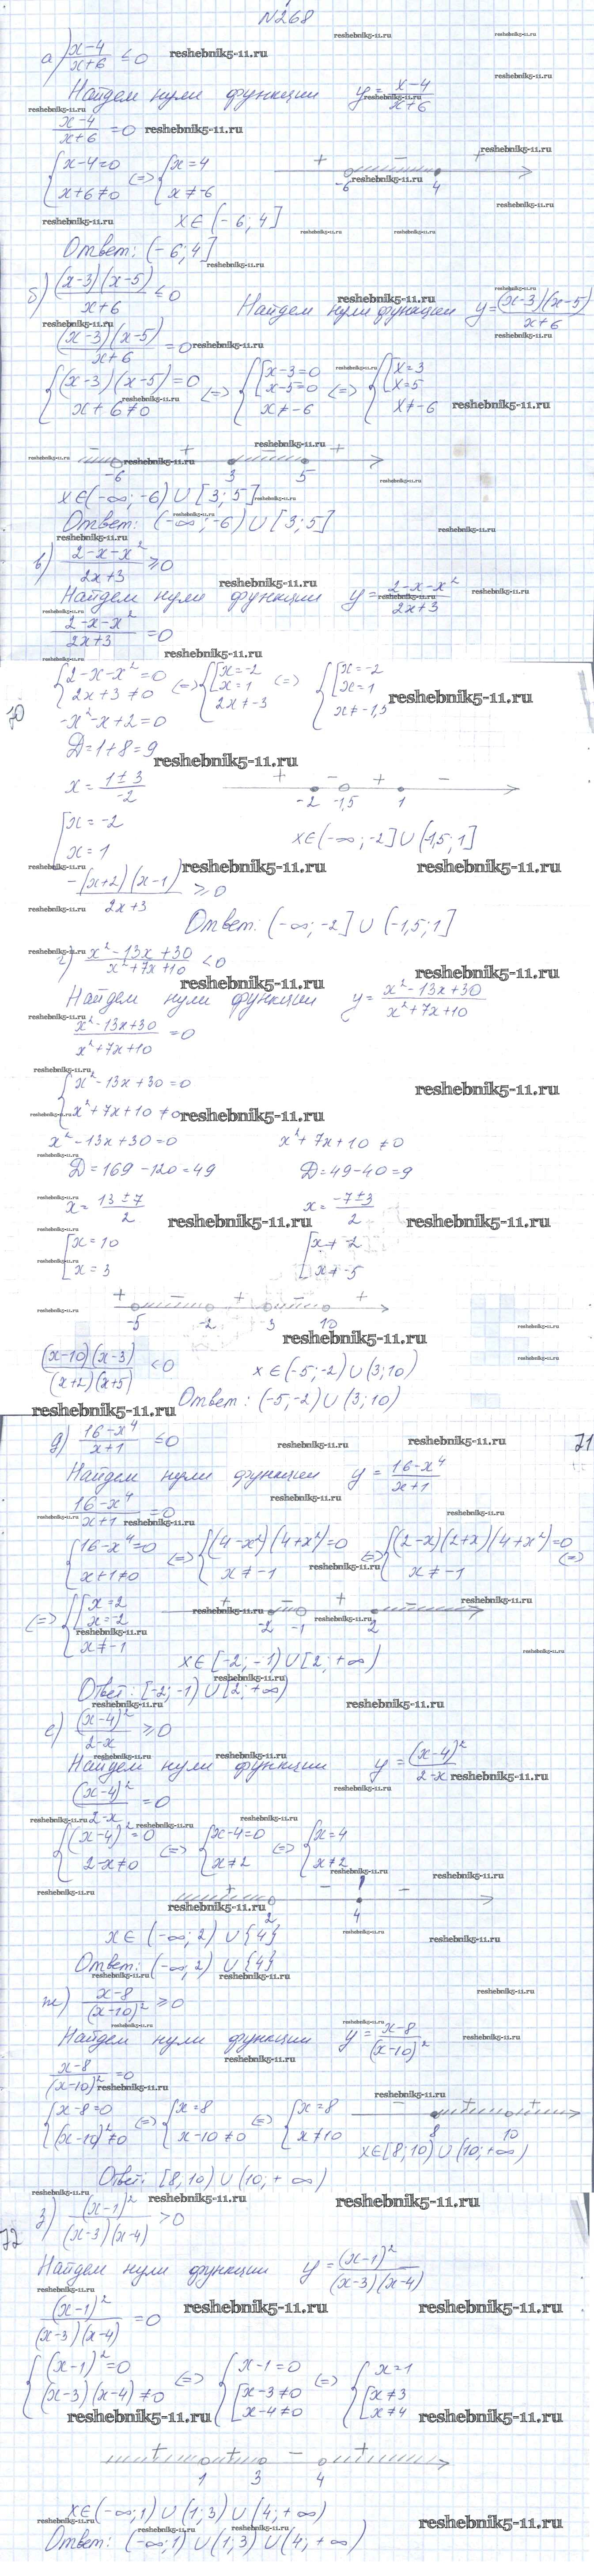 №268
а) x-4/x+6 ≤0 reshebnik5-11.ru
Найдем нули функции y = x-4/x+6
x-4/x+6 =0 reshebnik5-11.ru
{x-4=0 (=) {x=4
x+6≠0 x≠-6
+ - +
-6 4
x∈(-6; 4]
Ответ: (-6; 4]
б) (x-3)(x-5)/x+6 ≤0 Найдем нули функции y= (x-3)(x-5)/x+6
(x-3)(x-5)/x+6 =0
{(x-3)(x-5)=0 (=) {[x-3=0 (=) {[x=3
x+6≠0 x-5=0 x=5
x≠-6 x≠-6
- + - +
-6 3 5
x∈(-∞; -6) ∪ [3; 5]
Ответ: (-∞; -6) ∪ [3; 5]
в) 2-x-x²/2x+3 ≥0
Найдем нули функции y= 2-x-x²/2x+3
2-x-x²/2x+3 =0
70
{2-x-x²=0 (=) {[x=-2 (=) {[x=-2
2x+3≠0 x=1 x=1
2x≠-3 x≠-1,5
-x²-x+2=0
D=1+8=9
x= 1±3/-2
+ - + -
-2 -1,5 1
[x=-2
x=1
x∈(-∞; -2] ∪ (1,5; 1]
-(x+2)(x-1)/2x+3 ≥0
Ответ: (-∞; -2] ∪ (-1,5; 1]
г) x²-13x+30/x²+7x+10 <0
Найдем нули функции y= x²-13x+30/x²+7x+10
x²-13x+30/x²+7x+10 =0
{x²-13x+30=0
x²+7x+10≠0
x²-13x+30=0 x²+7x+10≠0
D=169-120=49 D=49-40=9
x= 13±7/2 x= -7±3/2
[x=10 [x≠-2
x=3 x≠-5
+ - + - +
-5 -2 3 10
(x-10)(x-3)/(x+2)(x+5) <0 x∈(-5;-2)∪(3;10)
Ответ: (-5;-2)∪(3;10)
71
д) 16-x⁴/x+1 ≤0
Найдем нули функции y= 16-x⁴/x+1
16-x⁴/x+1 =0
{16-x⁴=0 (=) {(4-x²)(4+x²)=0 (=) {(2-x)(2+x)(4+x²)=0 (=)
x+1≠0 x≠-1 x≠-1
(=) {[x=2
x=-2
x≠-1
+ - + -
-2 -1 2
x∈[-2; -1)∪[2; +∞)
Ответ: [-2; -1)∪[2; +∞)
е) (x-4)²/2-x ≥0
Найдем нули функции y= (x-4)²/2-x
(x-4)²/2-x =0
{(x-4)²=0 (=) {x-4=0 (=) {x=4
2-x≠0 x≠2 x≠2
+ - -
2 4
x∈(-∞; 2) ∪ {4}
Ответ: (-∞; 2) ∪ {4}
ж) x-8/(x-10)² ≥0
Найдем нули функции y= x-8/(x-10)²
x-8/(x-10)² =0
{x-8=0 (=) {x=8 (=) {x=8
(x-10)²≠0 x-10≠0 x≠10
- + +
8 10
x∈[8;10)∪(10; +∞)
Ответ: [8; 10) ∪ (10; +∞)
72
з) (x-1)²/(x-3)(x-4) >0
Найдем нули функции y= (x-1)²/(x-3)(x-4)
(x-1)²/(x-3)(x-4) =0
{(x-1)²=0 (=) {x-1=0 (=) {x=1
(x-3)(x-4)≠0 [x-3≠0 [x≠3
x-4≠0 x≠4
+ + - +
1 3 4
x∈(-∞; 1) ∪ (1; 3) ∪ (4; +∞)
reshebnik5-11.ru
Ответ: (-∞; 1) ∪ (1; 3) ∪ (4; +∞)